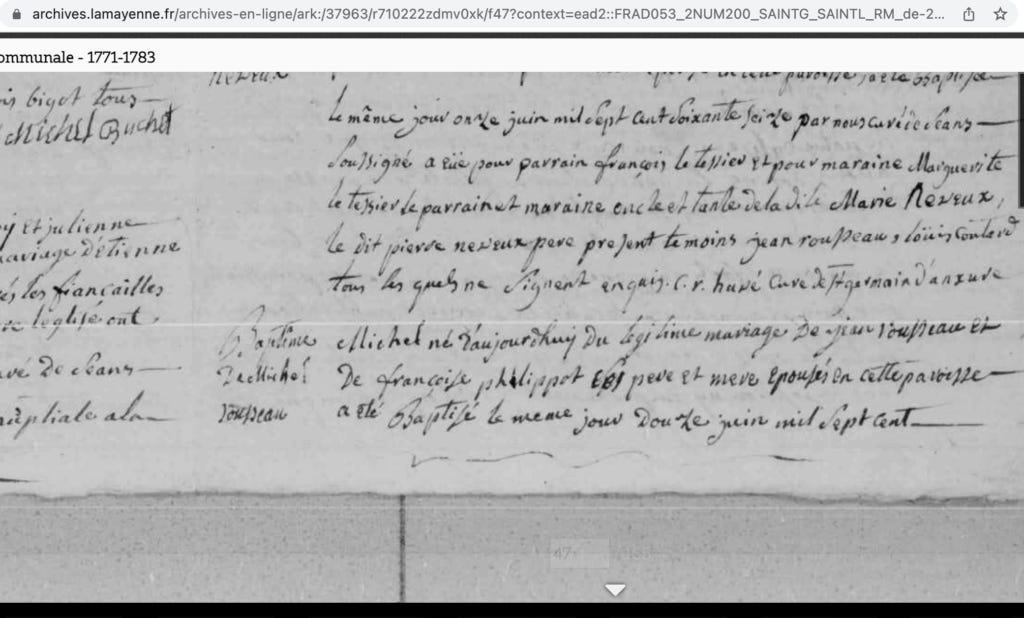 archives.lamayenne.fr/archives-en-ligne/ark:/37963/r710222zdmv0xk/f47?context=ead2::FRAD053_2NUM200_SAINTG_SAINTL_RM_de-2...
ommunale - 1771-1783
is bigot tous
Michel Buchet
y et julienne
mariage d'étienne
és les fiançailles
l'église ont
vé de Ceans
nuptiale a la
neveux
paroisse, a été Baptisée
le même jour onze juin mil Sept cent Soixante Seize par nous curé de Ceans
Soussigné a eüe pour parrain françois le tessier et pour maraine Marguerite
le tessier le parrain et maraine oncle et tante de la dite Marie Neveux,
le dit pierre neveux pere present temoins jean rousseau, loüis coutard
tous les quels ne Signent enquis. C. r. huvé Curé de St germain d'anxure
Baptême
De Michel
rousseau
Michel né d'aujourdhuy Du legitime mariage De jean rousseau et
De françoise phelippot Ses pere et mere Epousés en cette paroisse
a été Baptisé le meme jour Douze juin mil Sept cent
47